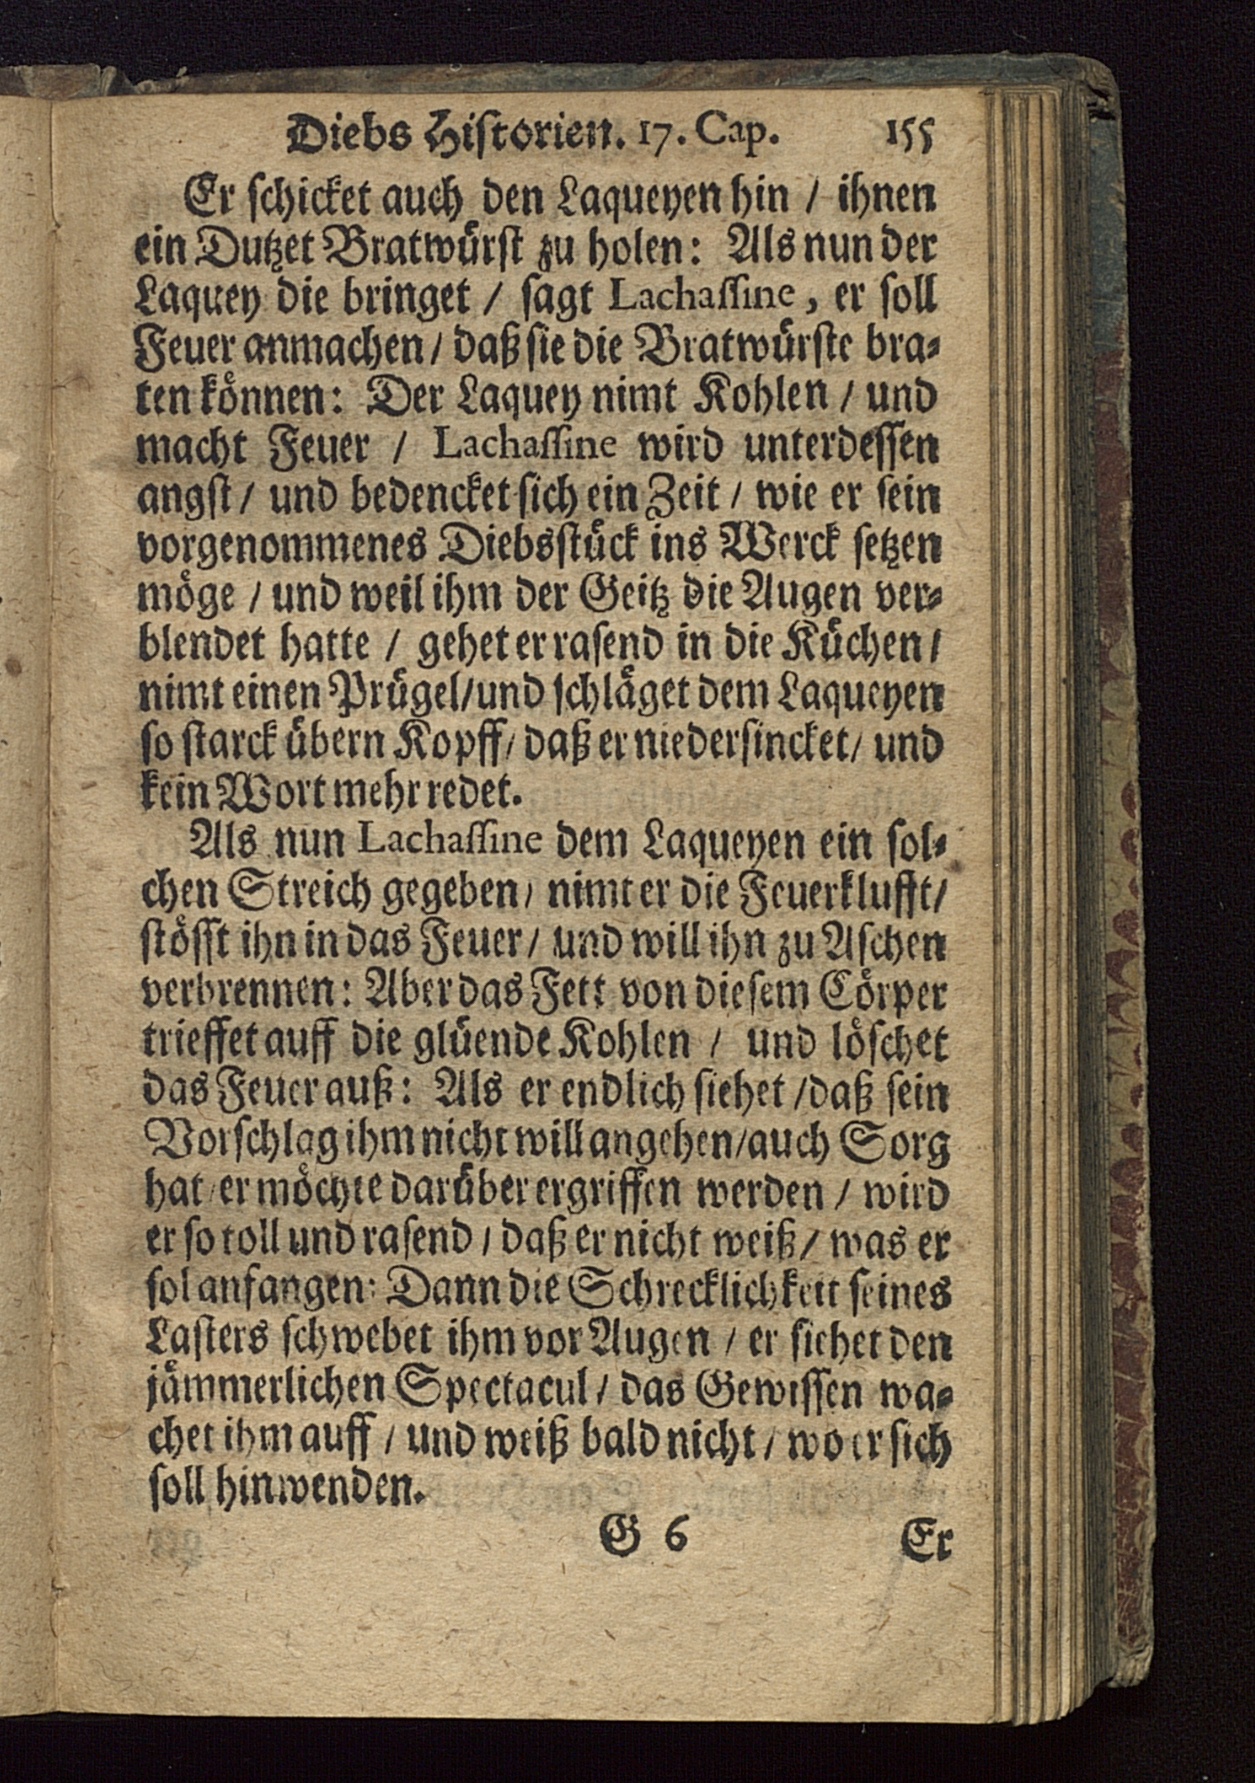 Diebs Historien. 17. Cap. 155
Er schicket auch den Laqueyen hin / ihnen
ein Dutzet Bratwürst zu holen: Als nun der
Laquey die bringet / sagt Lachassine, er soll
Feuer anmachen / daß sie die Bratwürste bra-
ten können: Der Laquey nimt Kohlen / und
macht Feuer / Lachassine wird unterdessen
angst / und bedencket sich ein Zeit / wie er sein
vorgenommenes Diebsstück ins Werck setzen
möge / und weil ihm der Geitz die Augen ver-
blendet hatte / gehet er rasend in die Küchen /
nimt einen Prügel / und schläget dem Laqueyen
so starck übern Kopff / daß er niedersincket / und
kein Wort mehr redet.
Als nun Lachassine dem Laqueyen ein sol-
chen Streich gegeben / nimt er die Feuerklufft /
stösst ihn in das Feuer / und will ihn zu Aschen
verbrennen: Aber das Fett von diesem Cörper
trieffet auff die glüende Kohlen / und löschet
das Feuer auß: Als er endlich siehet / daß sein
Vorschlag ihm nicht will angehen / auch Sorg
hat / er möchte darüber ergriffen werden / wird
er so toll und rasend / daß er nicht weiß / was er
sol anfangen: Dann die Schrecklichkeit seines
Lasters schwebet ihm vor Augen / er siehet den
jämmerlichen Spectacul / das Gewissen wa-
chet ihm auff / und weiß bald nicht / wo er sich
soll hinwenden.
G 6 Er